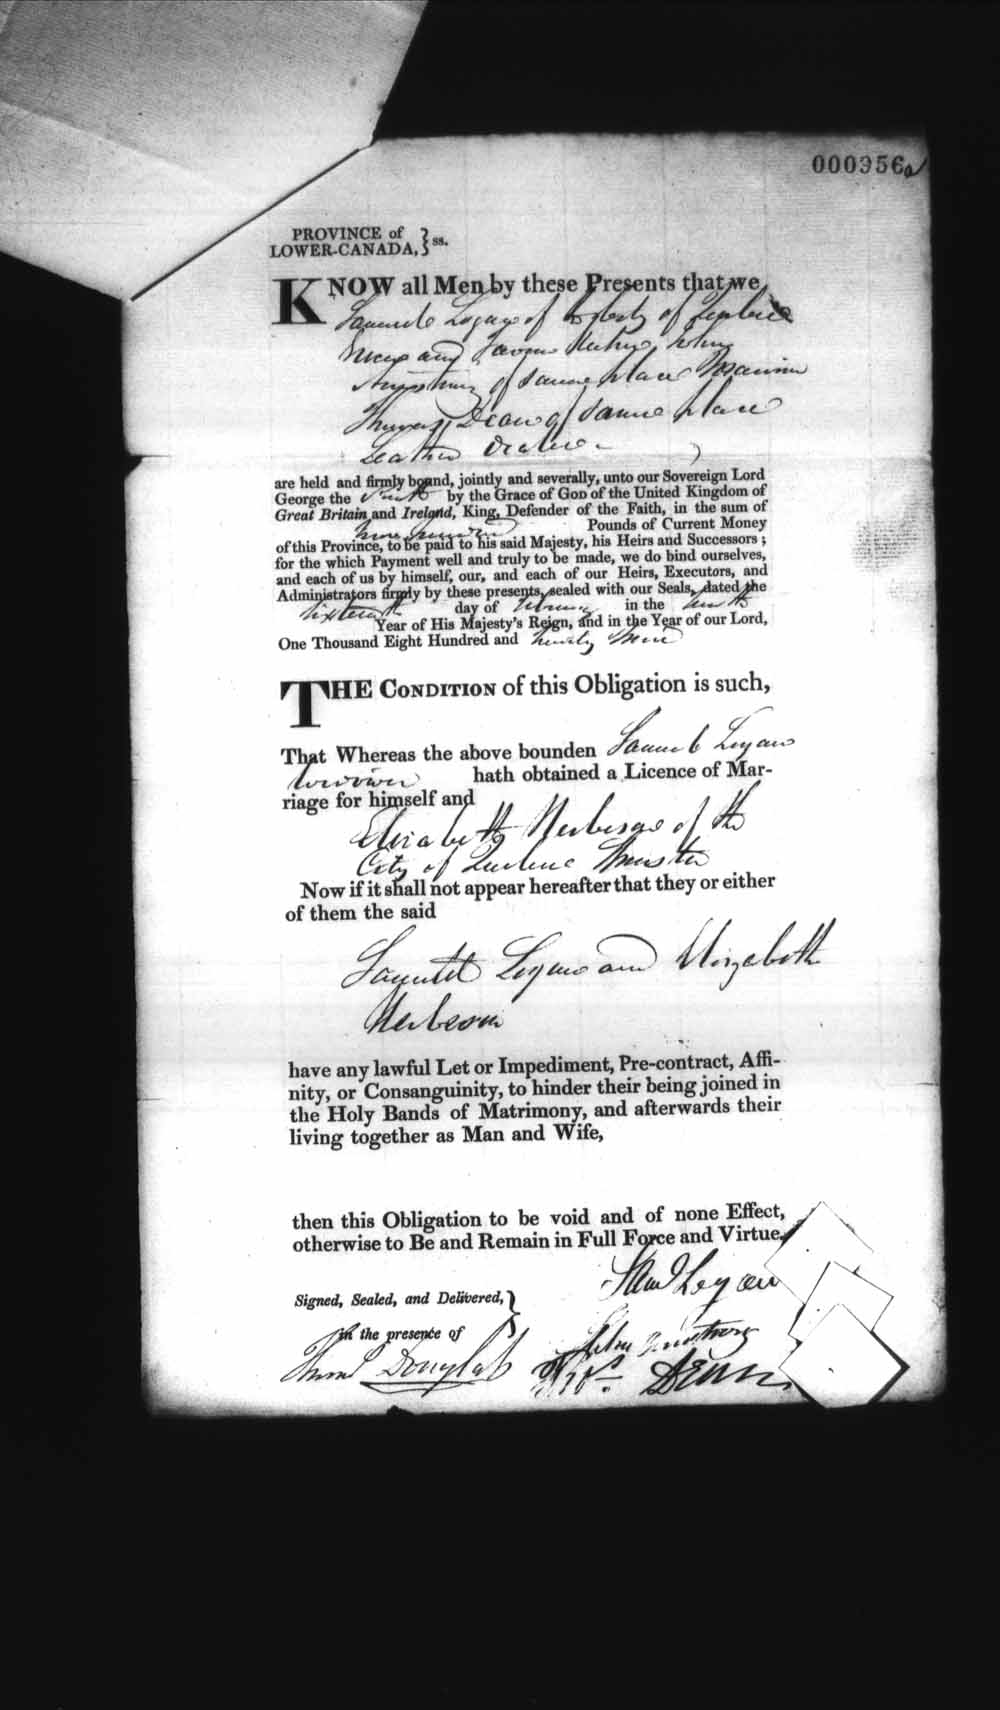 000356a
PROVINCE of
LOWER-CANADA, } ss.
KNOW all Men by these Presents that we
Samuel Logan of City of Quebec
and Tavern John
Armstrong of same place
Thomas Dean of same place
Leather
are held and firmly bound, jointly and severally, unto our Sovereign Lord
George the by the Grace of GOD of the United Kingdom of
Great Britain and Ireland, King, Defender of the Faith, in the sum of
Pounds of Current Money
of this Province, to be paid to his said Majesty, his Heirs and Successors;
for the which Payment well and truly to be made, we do bind ourselves,
and each of us by himself, our, and each of our Heirs, Executors, and
Administrators firmly by these presents, sealed with our Seals, dated the
Sixteenth day of in the
Year of His Majesty's Reign, and in the Year of our Lord,
One Thousand Eight Hundred and twenty
THE CONDITION of this Obligation is such,
That Whereas the above bounden Samuel Logan
widower hath obtained a Licence of Mar-
riage for himself and
Elizabeth of the
City of Quebec Spinster
Now if it shall not appear hereafter that they or either
of them the said
Samuel Logan and Elizabeth
have any lawful Let or Impediment, Pre-contract, Affi-
nity, or Consanguinity, to hinder their being joined in
the Holy Bands of Matrimony, and afterwards their
living together as Man and Wife,
then this Obligation to be void and of none Effect,
otherwise to Be and Remain in Full Force and Virtue.
Saml Logan
Signed, Sealed, and Delivered, }
in the presence of
John Armstrong
Douglas
Thos Dean